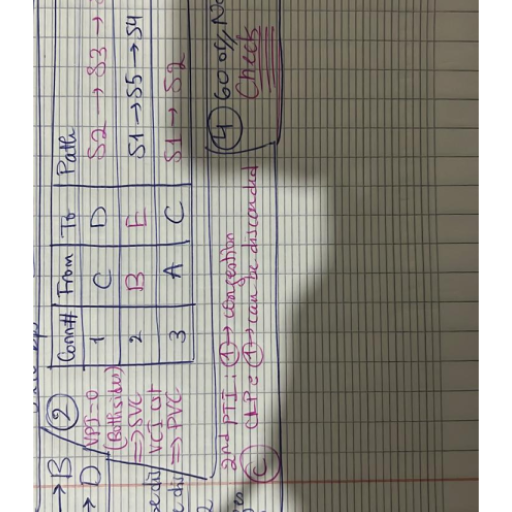 → B
→ D
②
VPI=0
(Both sides)
⇒ SVC
VCI
⇒ PVC
Conn# From To Path
1 C D S2 → S3 →
2 B E S1 → S5 → S4
3 A C S1 → S2
2nd PTI: ① → congestion
CLP: ① → can be discarded
C
④ 600
Check